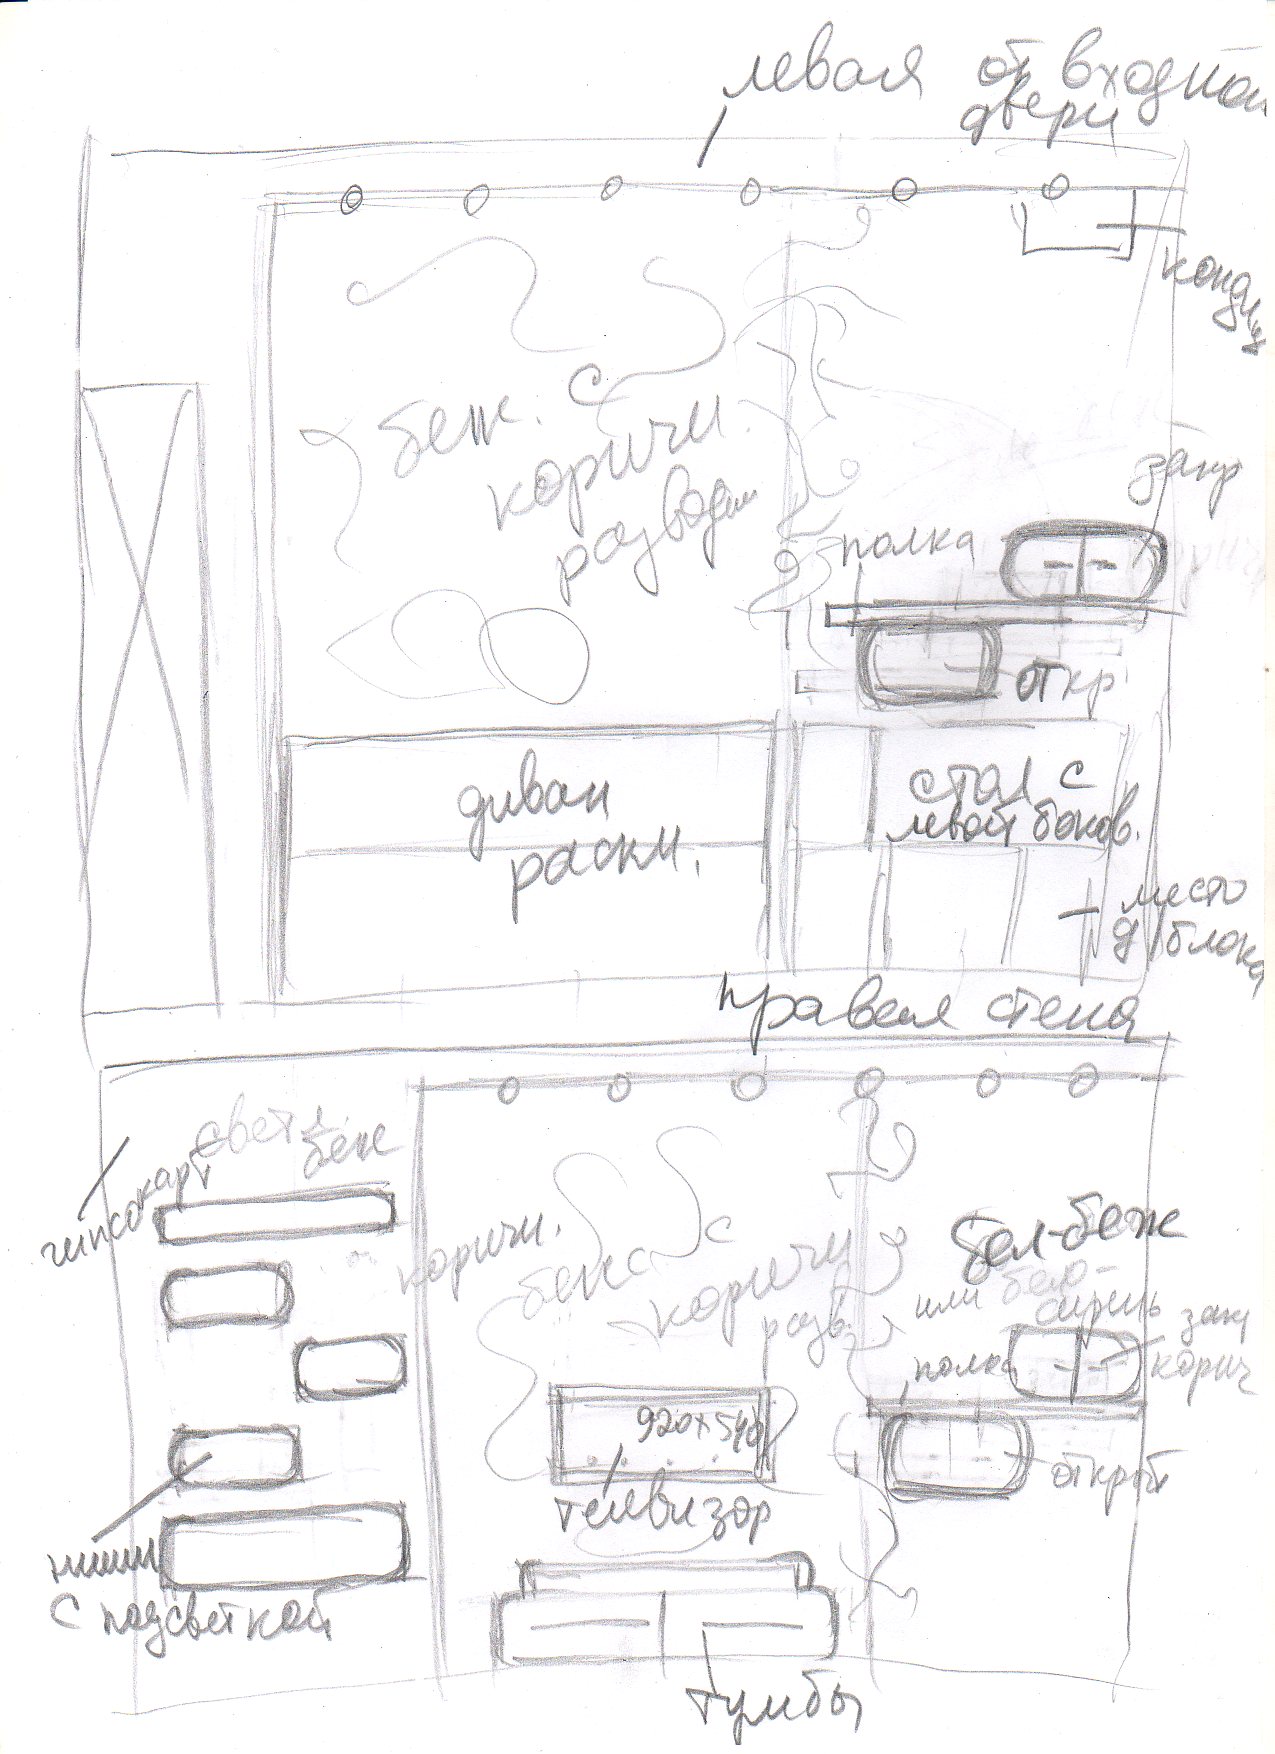 левая от входной
двери
конд
беж. с
коричн.
разводам
закр
полка
откр
диван
раскл.
стол с
левой боков.
место
д/блока
правая стена
свет.
беж
гипсокарт
коричн.
беж с
коричн
разв.
бел-беж
или бело-
сирень
закр
корич
полка
920х540
открыт
телевизор
ниши
с подсветкой
тумбы